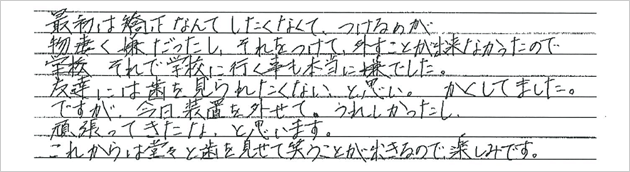 最初は矯正なんてしたくなくて、つけるのが
物凄く嫌だったし、それをつけて、外すことが出来なかったので
学校 それで学校に行く事も本当に嫌でした。
友達には歯を見られたくない、と思い。 かくしてました。
ですが、今日、装置を外せて。うれしかったし、
頑張ってきたな、と思います。
これからは堂々と歯を見せて笑うことが出きるので、楽しみです。